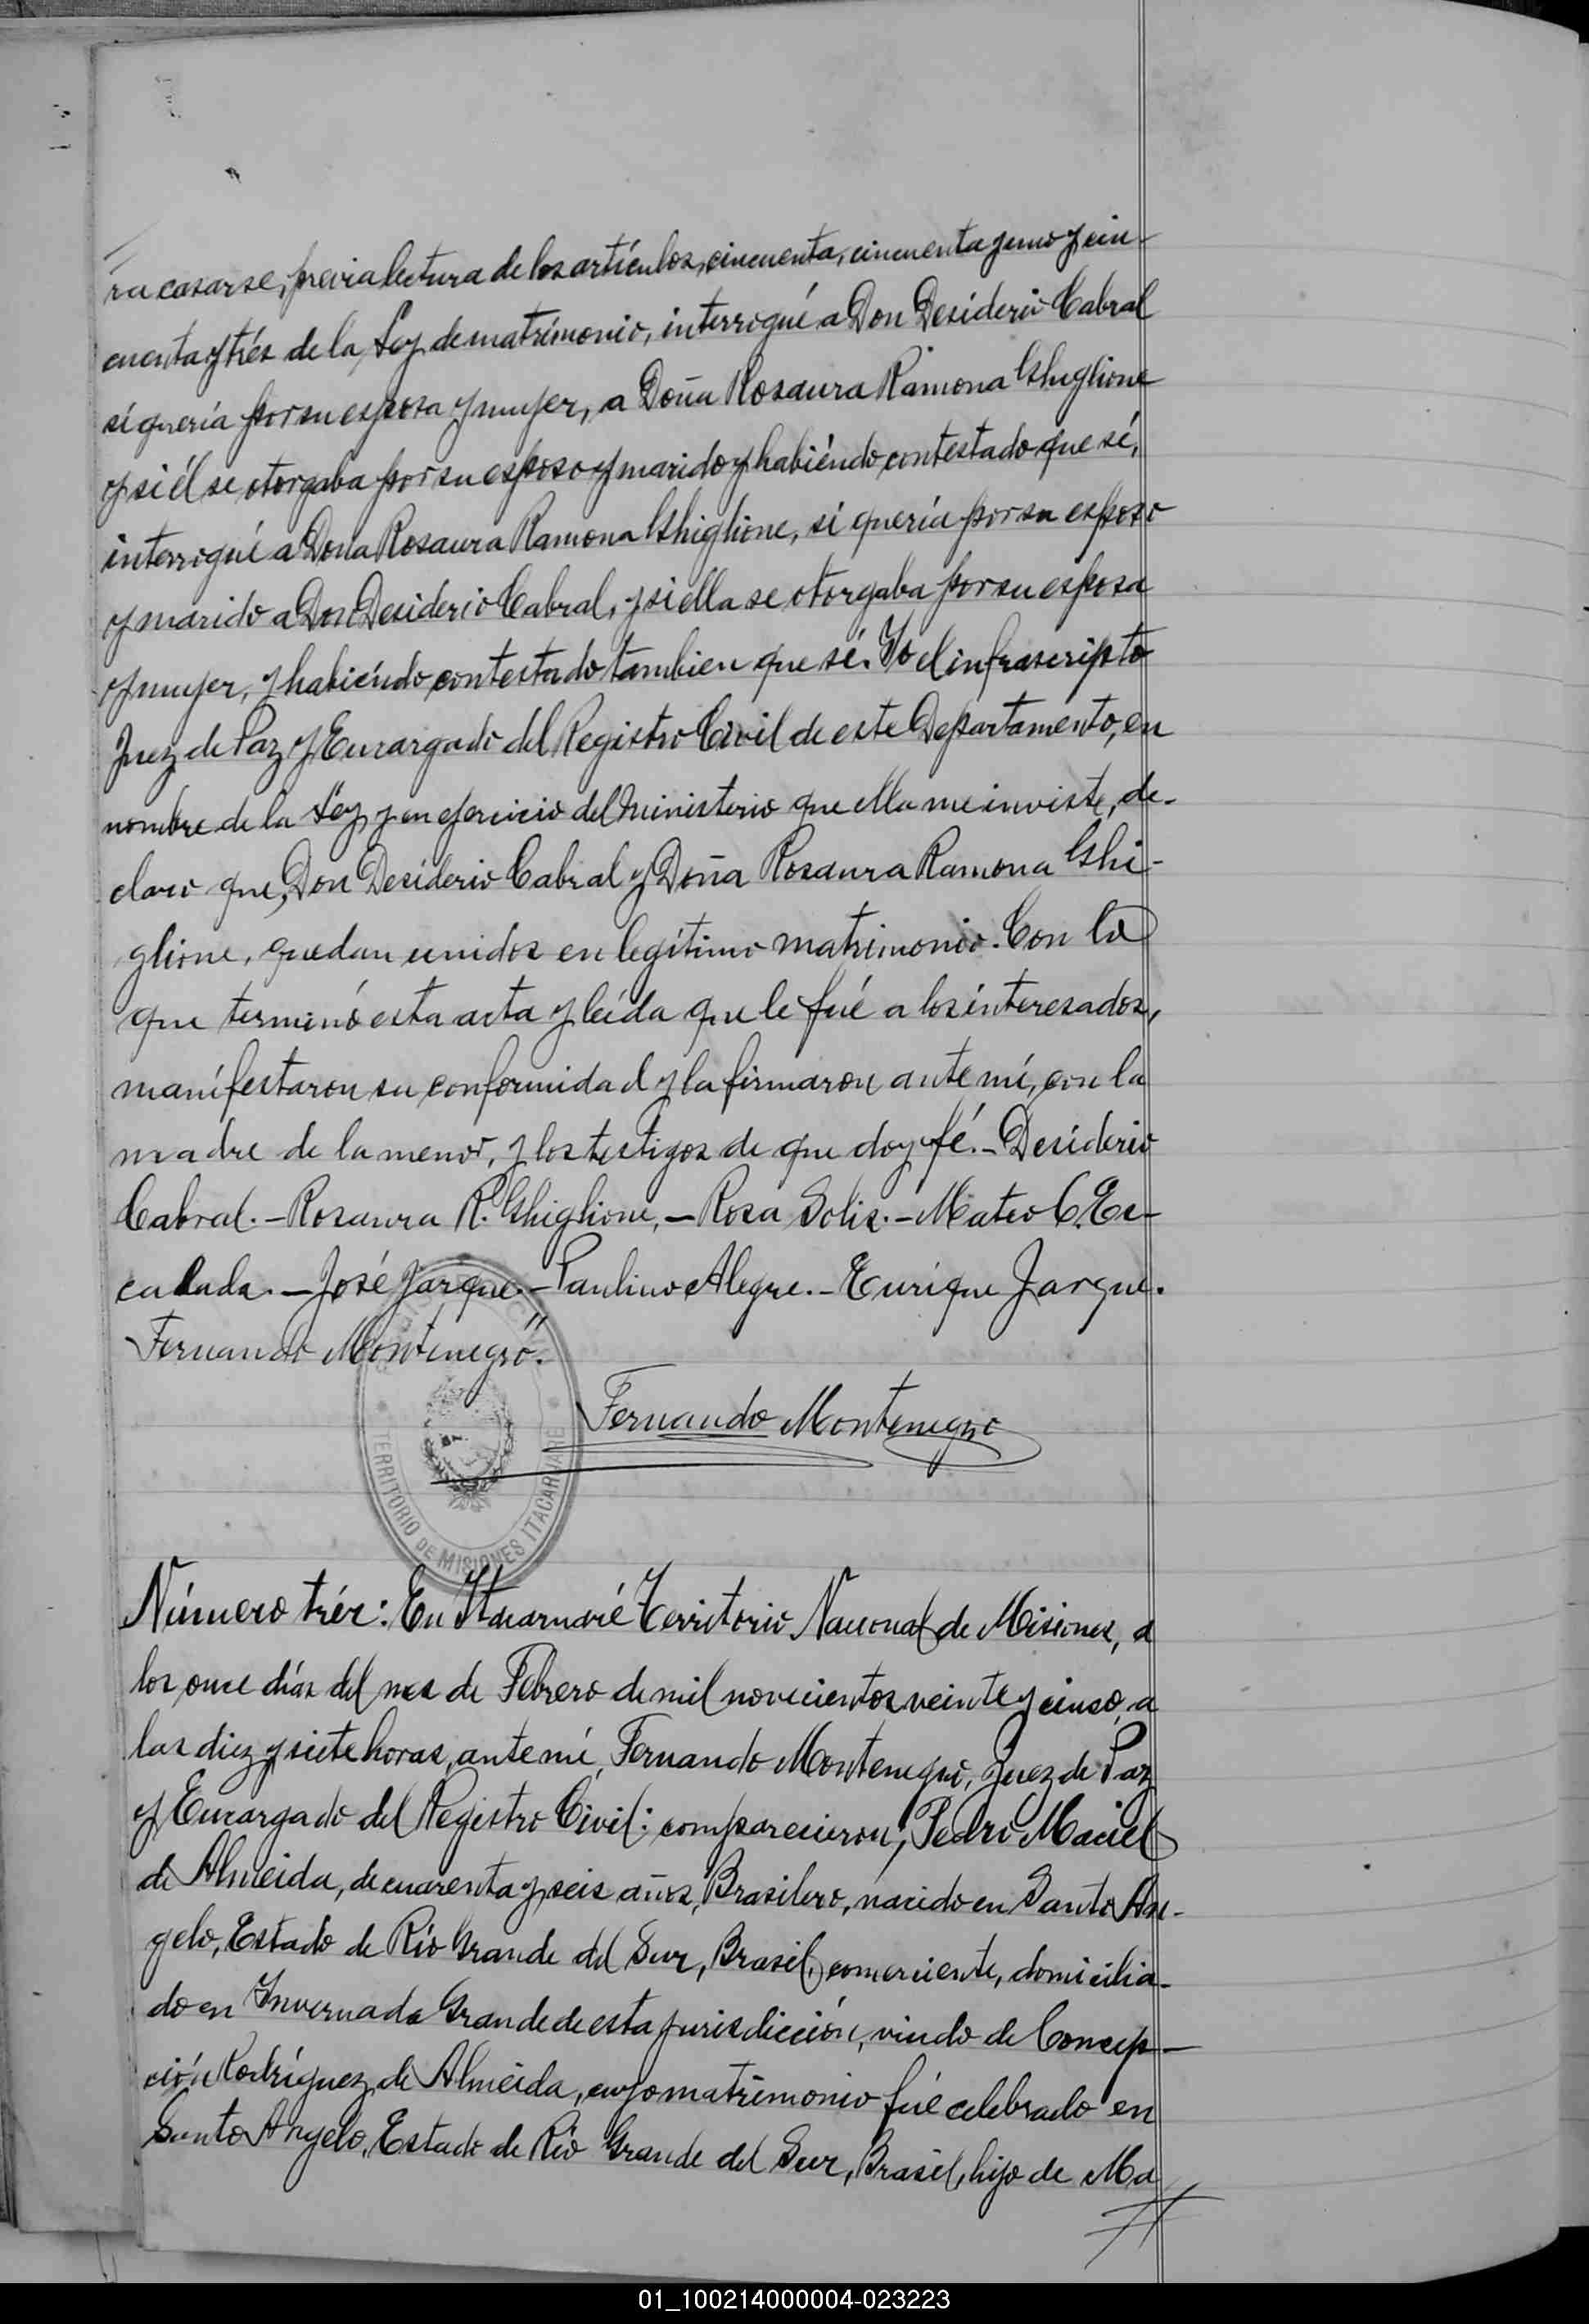 ra casarse, previa lectura de los artículos, cincuenta, cincuenta y uno y cin-
cuenta y trés de la Ley de matrimonio, interrogué a Don Desiderio Cabral
si quería por su esposa y mujer, a Doña Rosaura Ramona Ghiglione
y si él se otorgaba por su esposo y marido y habiéndo contestado que sí,
interrogué a Doña Rosaura Ramona Ghiglione, si quería por su esposo
y marido a Don Desiderio Cabral, y si ella se otorgaba por su esposa
y mujer, y habiéndo contestado tambien que sí. Yo el infrascripto
Juez de Paz y Encargado del Registro Civil de este Departamento, en
nombre de la Ley, y en ejercicio del Ministerio que ella me inviste, de-
claro que, Don Desiderio Cabral y Doña Rosaura Ramona Ghi-
glione, quedan unidos en legítimo matrimonio. Con lo
que terminó esta acta y leída que le fué a los interesados,
manifestaron su conformidad y la firmaron ante mí, con la
madre de la menor, y los testigos de que doy fé.- Desiderio
Cabral.- Rosaura R. Ghiglione,- Rosa Solis.- Mateo C. Es-
calada.- José Jarque.- Paulino Alegre.- Enrique Jarque.
Fernando Montenegro".
Fernando Montenegro
TERRITORIO DE MISIONES ITACARUARE
Número trés: En Itacaruaré Territorio Nacional de Misiones, a
los once días del mes de Febrero de mil novecientos veinte y cinco, a
las diez y siete horas, ante mí, Fernando Montenegro, Juez de Paz
y Encargado del Registro Civil: comparecieron, Pedro Maciel
de Almeida, de cuarenta y seis años, Brasilero, nacido en Santo An-
gelo, Estado de Río Grande del Sur, Brasil, comerciente, domicilia-
do en Invernada Grande de esta jurisdicción, viudo de Concep-
ción Rodríguez de Almeida, cuyo matrimonio fué celebrado en
Santo Angelo, Estado de Río Grande del Sur, Brasil, hijo de Ma
01_100214000004-023223